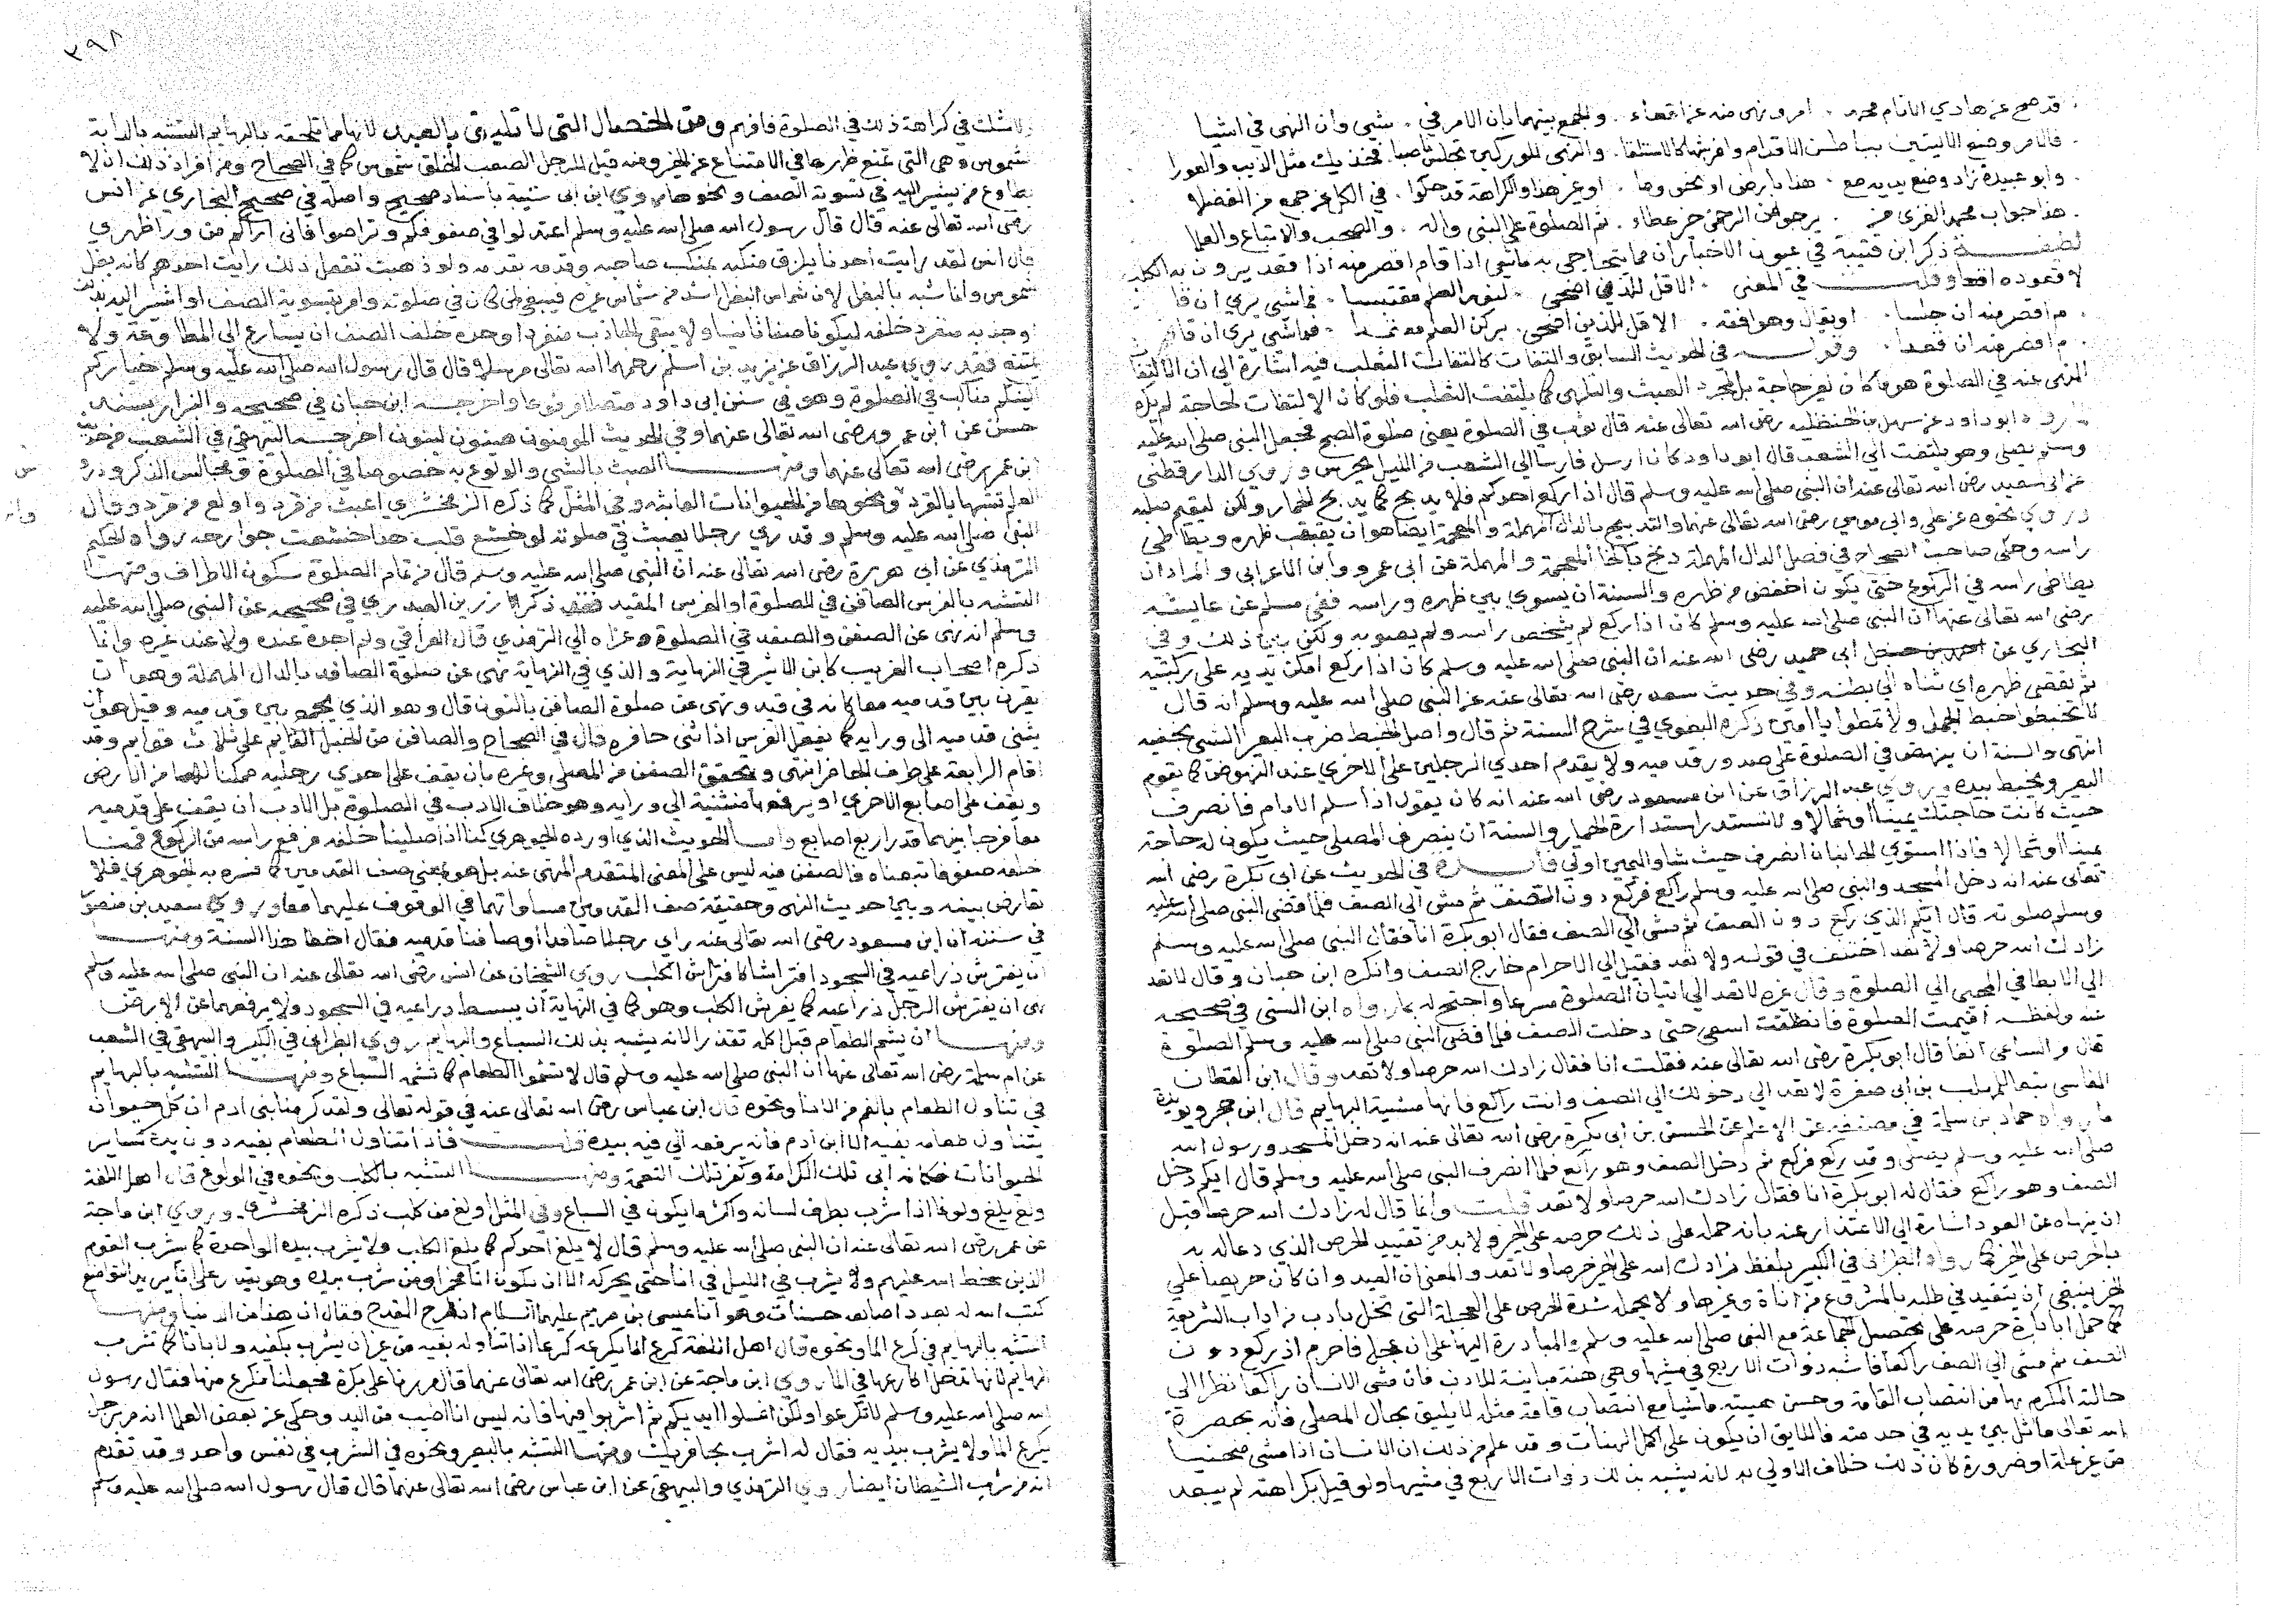 قد صح عن هادي الانام محمد . امر ونهى منه عن اقعاء . والجمع بينهما بان الامر في . شيء وان النهي في اشيا
فالامر وضع الاليتين بباطن الاقدام وافرشها كالاستلقا . والنهي للوركين تجلس ناصبا فخذيك مثل الذيب والعورا
وابو عبيدة زاد وضع يديه مع . هذا بارض او نحوها . او غير هذا والكراهة قد حكوا . في الكل عن جمع من الفضلا
هذا جواب محمد الغزي من . يرجو من الرحمن خير عطاء . ثم الصلوة على النبي واله . والصحب والاتباع والعلما
لطيفة ذكر ابن قتيبة في عيون الاخبار ان مما يتحاجى به ما شي اذا قام اقصر منه اذا قعد يريدون به الكلب
لا قعوده اقعا وقلت في المعنى . الا قل للذي اضحى . لبعض العلم مقتبسا . فما شي يرى ان قا
م اقصر منه ان جلسا . او يقال وهو افقه . الا قل للذي اضحى . بركن العلم معتمدا . فما شي يرى ان قا
م اقصر منه ان قعدا . وقوله في الحديث السابق والتفات كالتفات الثعلب فيه اشارة الى ان الالتفات
المنهي عنه في الصلوة هو ما كان لغير حاجة بل لمجرد العبث والتلهي كما يلتفت الثعلب فلو كان الالتفات لحاجة لم يكره
ابو داود عن سهل بن الحنظلية رضى الله تعالى عنه قال ثوب في الصلوة يعني صلوة الصبح فجعل النبي صلى الله عليه
وسلم يصلي وهو يلتفت الى الشعب قال ابو داود كان ارسل فارسا الى الشعب من الليل يحرس وروي الدارقطني
عن ابي سعيد رضى الله تعالى عنه ان النبي صلى الله عليه وسلم قال اذا ركع احدكم فلا يدبح كما يدبح الحمار ولكن ليقيم صلبه
وروي نحوه عن علي وابي موسى رضى الله تعالى عنهما والتدبيح بالدال المهملة والمعجمة ايضا هو ان يقبب ظهره ويطاطي
راسه وحكى صاحب الصحاح في فصل الدال المهملة دبخ بالخا المعجمة والمهملة عن ابي عمرو وابن الاعرابي والمراد ان
يطاطي راسه في الركوع حتى يكون اخفض من ظهره والسنة ان يسوي بين ظهره وراسه ففي مسلم عن عايشه
رضى الله تعالى عنها ان النبي صلى الله عليه وسلم كان اذا ركع لم يشخص راسه ولم يصوبه ولكن بين ذلك وفي
البخاري عن ابي حميد رضى الله عنه ان النبي صلى الله عليه وسلم كان اذا ركع امكن يديه على ركبتيه
ثم هصر ظهره اي ثناه الى بطنه وفي حديث سعد رضى الله تعالى عنه عن النبي صلى الله عليه وسلم انه قال
لا تخبطوا خبط الجمل ولا تمطوا بامين ذكره البغوي في شرح السنة ثم قال واصل الخبط ضرب البعير الشي بخفيه
انتهى والسنة ان ينهض في الصلوة على صدور قدميه ولا يقدم احدي الرجلين على الاخري عند النهوض كما يقوم
البعير ويخبط بيده وروي عبد الرزاق عن ابن مسعود رضى الله عنه انه كان يقول اذا سلم الامام فانصرف
حيث كانت حاجتك يمينا او شمالا ولا تستدر استدارة الحمار والسنة ان ينصرف المصلي حيث يكون له حاجة
يمينا او شمالا فاذا استوي الجانبان انصرف حيث شا واليمين اولى فايدة في الحديث عن ابي بكرة رضى الله
تعالى عنه انه دخل المسجد والنبي صلى الله عليه وسلم راكع فركع دون الصف ثم مشى الى الصف فلما قضى النبي صلى الله عليه
وسلم صلوته قال ايكم الذي ركع دون الصف ثم مشي الى الصف فقال ابو بكرة انا فقال النبي صلى الله عليه وسلم
زادك الله حرصا ولا تعد اختلف في قوله ولا تعد فقيل الى الاحرام خارج الصف وانكره ابن حبان وقال لا تعد
الى الابطا في المجي الى الصلوة وقال غيره لا تعد الى اتيان الصلوة مسرعا واحتج له بما رواه ابن السني في صحيحه
عنه ولفظه اقيمت الصلوة فانطلقت اسعى حتى دخلت الصف فلما قضى النبي صلى الله عليه وسلم الصلوة
قال من الساعي انفا قال ابو بكرة رضى الله تعالى عنه فقلت انا فقال زادك الله حرصا ولا تعد وقال ابن القطان
الفاسي تبعا للمهلب بن ابي صفرة لا تعد الى دخولك الى الصف وانت راكع فانها مشية البهايم قال ابن حجر ويويده
ما رواه حماد بن سلمة في مصنفه عن الاعلم عن الحسن بن ابي بكرة رضى الله تعالى عنه انه دخل المسجد ورسول الله
صلى الله عليه وسلم يصلي وقد ركع فركع ثم دخل الصف وهو راكع فلما انصرف النبي صلى الله عليه وسلم قال ايكم دخل
الصف وهو راكع فقال له ابو بكرة انا فقال زادك الله حرصا ولا تعد قلت وانما قال له زادك الله حرصا قبل
ان ينهاه عن العود اشارة الى الاعتذار عنه بانه حمله على ذلك حرصه على الخير ولا بد من تقييد الحرص الذي دعا له به
بالحرص على الخير كما رواه الطبراني في الكبير بلفظ زادك الله على الخير حرصا ولا تعد والمعنى ان العبد وان كان حريصا علي
الخير ينبغي ان يتقيد في طلبه بالمشروع من اناة وغيرها ولا يحمله شدة الحرص على العجلة التي تخل بادب من اداب الشريعة
كما حمل ابا بكرة حرصه على تحصيل الجماعة مع النبي صلى الله عليه وسلم والمبادرة اليها على ان عجل فاحرم اذ ركع دون
الصف ثم مشى الى الصف راكعا فاشبه ذوات الاربع في مشيها وهي هيئة مباينة للادب فان مشي الانسان راكعا نظرا الي
حالته المكرم بها من انتصاب القامة وحسن هيئته ماشيا مع انتصاب قامة مثله لا يليق بحال المصلي فانه بحضرة
الله تعالى ماثل بين يديه في خدمته فاللايق ان يكون على اكمل الهيئات وقد علم من ذلك ان الانسان اذا مشى منحنيا
من غير علة او ضرورة كان ذلك خلاف الاولى به لانه يشبه بذلك ذوات الاربع في مشيها ولو قيل بكراهته لم يبعد
٢٩٨
ولا شك في كراهة ذلك في الصلوة فافهم ومن الخصال التي لا تليق بالعبد لانها ما تلحقه بالبهايم التشبه بالدابة
شموس وهي التي تمنع ظهرها في الامتناع عن الخير ومنه قيل للرجل الصعب الخلق شموس كما في الصحاح ومن افراد ذلك ان لا
يطاوع من يشير اليه في تسوية الصف ونحوها روي ابن ابي شيبة باسناد صحيح واصله في صحيح البخاري عن انس
رضى الله تعالى عنه قال قال رسول الله صلى الله عليه وسلم اعتدلوا في صفوفكم وتراصوا فاني اراكم من ورا ظهري
قال انس لقد رايت احدنا يلزق منكبه بمنكب صاحبه وقدمه بقدمه ولو ذهبت تفعل ذلك رايت احدهم كانه بغل
شموس وانما شبه بالبغل لان شماس البغل اشد من شماس غيره فينبغي لمن كان في صلوته وامر بتسوية الصف او اشير اليه بذلك
او جذبه منفرد خلفه ليكونا صفا ثانيا ولا يبقى الجاذب منفردا وحده خلف الصف ان يسارع الى المطاوعة ولا
فقد روي عبد الرزاق عن زيد بن اسلم رحمهما الله تعالى مرسلا قال قال رسول الله صلى الله عليه وسلم خياركم
الينكم مناكب في الصلوة وهو في سنن ابي داود متصلا مرفوعا واخرجه ابن حبان في صحيحه والبزار بسند
حسن عن ابن عمر رضى الله تعالى عنهما وفي الحديث المومنون هينون لينون اخرجه البيهقي في الشعب من حديث
ابن عمر رضى الله تعالى عنهما ومنها العبث بالشي والولوع به خصوصا في الصلوة ومجالس الذكر ودرو
العلم تشبها بالقرد ونحوها من الحيوانات العابثة وفي المثل كما ذكره الزمخشري اعبث من قرد واولع من قرد وقال
النبي صلى الله عليه وسلم وقد رءي رجلا يعبث في صلوته لو خشع قلب هذا خشعت جوارحه رواه الحكيم
الترمذي عن ابي هريرة رضى الله تعالى عنه ان النبي صلى الله عليه وسلم قال من تمام الصلوة سكون الاطراف ومنها
التشبه بالفرس الصافن في الصلوة او الفرس المقيد فقد ذكر رزين العبدري في صحيحه عن النبي صلى الله عليه
وسلم انه نهى عن الصفن والصفد في الصلوة وعزاه الى الترمذي قال العراقي ولم اجده عنده ولا عند غيره وانما
ذكره اصحاب الغريب كابن الاثير في النهاية والذي في النهاية نهى عن صلوة الصافد بالدال المهملة وهو ان
يقرن بين قدميه معا كانه في قيد ونهى عن صلوة الصافن بالنون قال وهو الذي يجمع بين قدميه وقيل هو ان
يثني قدميه الى ورايه كما يفعل الفرس اذا ثنى حافره قال في الصحاح والصافن من الخيل القايم على ثلاث قوايم وقد
اقام الرابعة على طرف الحافر انتهى ويتحقق الصفن من المصلي وغيره بان يقف على احدي رجليه ممكنا لها من الارض
ويقف على اصابع الاخرى او يرفعها مثنية الى ورايه وهو خلاف الادب في الصلوة بل الادب ان يقف على قدميه
معا مفرجا بينهما قدر اربع اصابع واما الحديث الذي اورده الجوهري كنا اذا صلينا خلفه فرفع راسه من الركوع قمنا
خلفه صفونا تبعناه فالصفن فيه ليس على المعنى المتقدم المنهي عنه بل هو بمعنى صف القدمين كما فسره به الجوهري فلا
تعارض بينه وبين حديث النهي وحقيقة صف القدمين مساواتهما في الوقوف عليهما معا وروي سعيد بن منصور
في سننه ان ابن مسعود رضى الله تعالى عنه راي رجلا صافدا او صافنا قدميه فقال اخطا هذا السنة ومنها
ان يفترش ذراعيه في السجود افتراشا كافتراش الكلب روي الشيخان عن انس رضى الله تعالى عنه ان النبي صلى الله عليه وسلم
نهى ان يفترش الرجل ذراعيه كما يفرش الكلب وهو كما في النهاية ان يبسط ذراعيه في السجود ولا يرفعهما عن الارض
ومنها ان يشم الطعام قبل اكله تقذرا لانه يشبه بذلك السباع والبهايم روي الطبراني في الكبير والبيهقي في الشعب
عن ام سلمة رضى الله تعالى عنها ان النبي صلى الله عليه وسلم قال لا تشموا الطعام كما تشمه السباع ومنها التشبه بالبهايم
في تناول الطعام بالفم من الانا ونحوه قال ابن عباس رضى الله تعالى عنه في قوله تعالى ولقد كرمنا بني ادم ان كل حيوان
يتناول طعامه بفيه الا ابن ادم فانه يرفعه الى فيه بيده قلت فاذا تناول الطعام بفيه دون يده كساير
الحيوانات فكانه ابى تلك الكرامة وكفر تلك النعمة ومنها التشبه بالكلب ونحوه في الولوغ قال اهل اللغة
ولغ يلغ ولوغا اذا شرب بطرف لسانه واكثر ما يكون في السباع وفي المثل اولغ من كلب ذكره الزمخشري وروي ابن ماجة
عن عمر رضى الله تعالى عنه ان النبي صلى الله عليه وسلم قال لا يلغ احدكم كما يلغ الكلب ولا يشرب بيده الواحدة كما يشرب القوم
الذين سخط الله عليهم ولا يشرب في الليل في انا حتى يحركه الا ان يكون انا مخمرا ومن شرب بيده وهو يقدر على انا يريد التواضع
كتب الله له بعدد اصابعه حسنات وهو انا عيسى بن مريم عليهما السلام اذ طرح القدح فقال ان هذا من الدنيا ومنها
التشبه بالبهايم في كرع الما ونحوه قال اهل اللغة كرع الما يكرعه كرعا اذا تناوله بفيه من غير ان يشرب بكفيه ولا بانا كما تشرب
البهايم لانها تدخل اكارعها في الما روي ابن ماجة عن ابن عمر رضى الله تعالى عنهما قال مررنا على بركة فجعلنا نكرع منها فقال رسول
الله صلى الله عليه وسلم لا تكرعوا ولكن اغسلوا ايديكم ثم اشربوا فيها فانه ليس انا اطيب من اليد وحكي عن بعض العلما انه مر برجل
يكرع الما ولا يشرب بيديه فقال له اشرب بحافريك ومنها التشبه بالبعير ونحوه في الشرب في نفس واحد وقد تقدم
انه من شرب الشيطان ايضا روي الترمذي والبيهقي عن ابن عباس رضى الله تعالى عنهما قال قال رسول الله صلى الله عليه وسلم